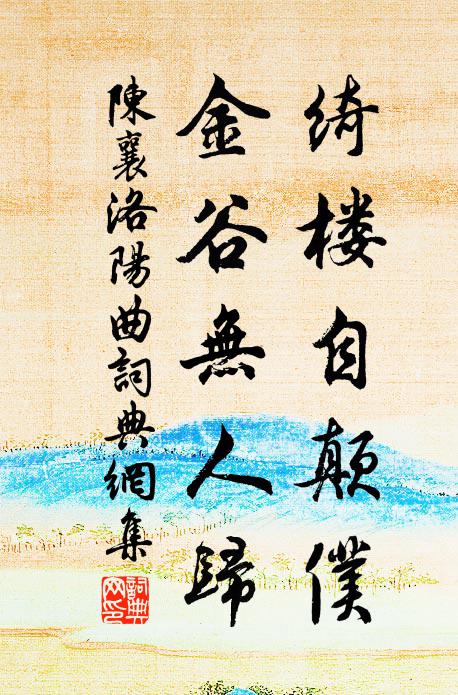 绮楼自颠僕
金谷無人歸
陳襄洛陽曲詞典網集